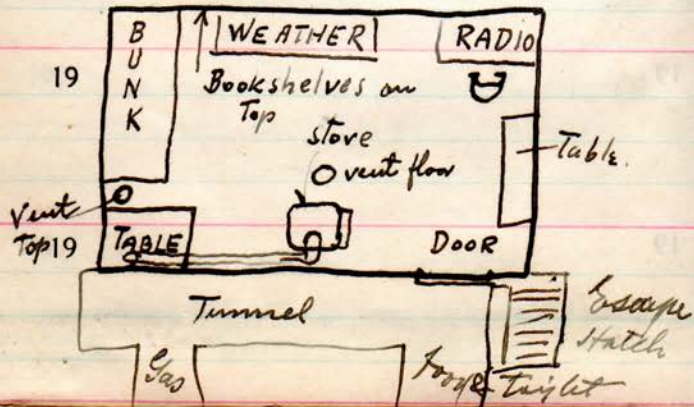 BUNK
WEATHER
RADIO
19
Bookshelves on
Top
stove
vent floor
Table.
Vent
Top 19
TABLE
DOOR
Tunnel
Escape
Hatch
Gas
toilet